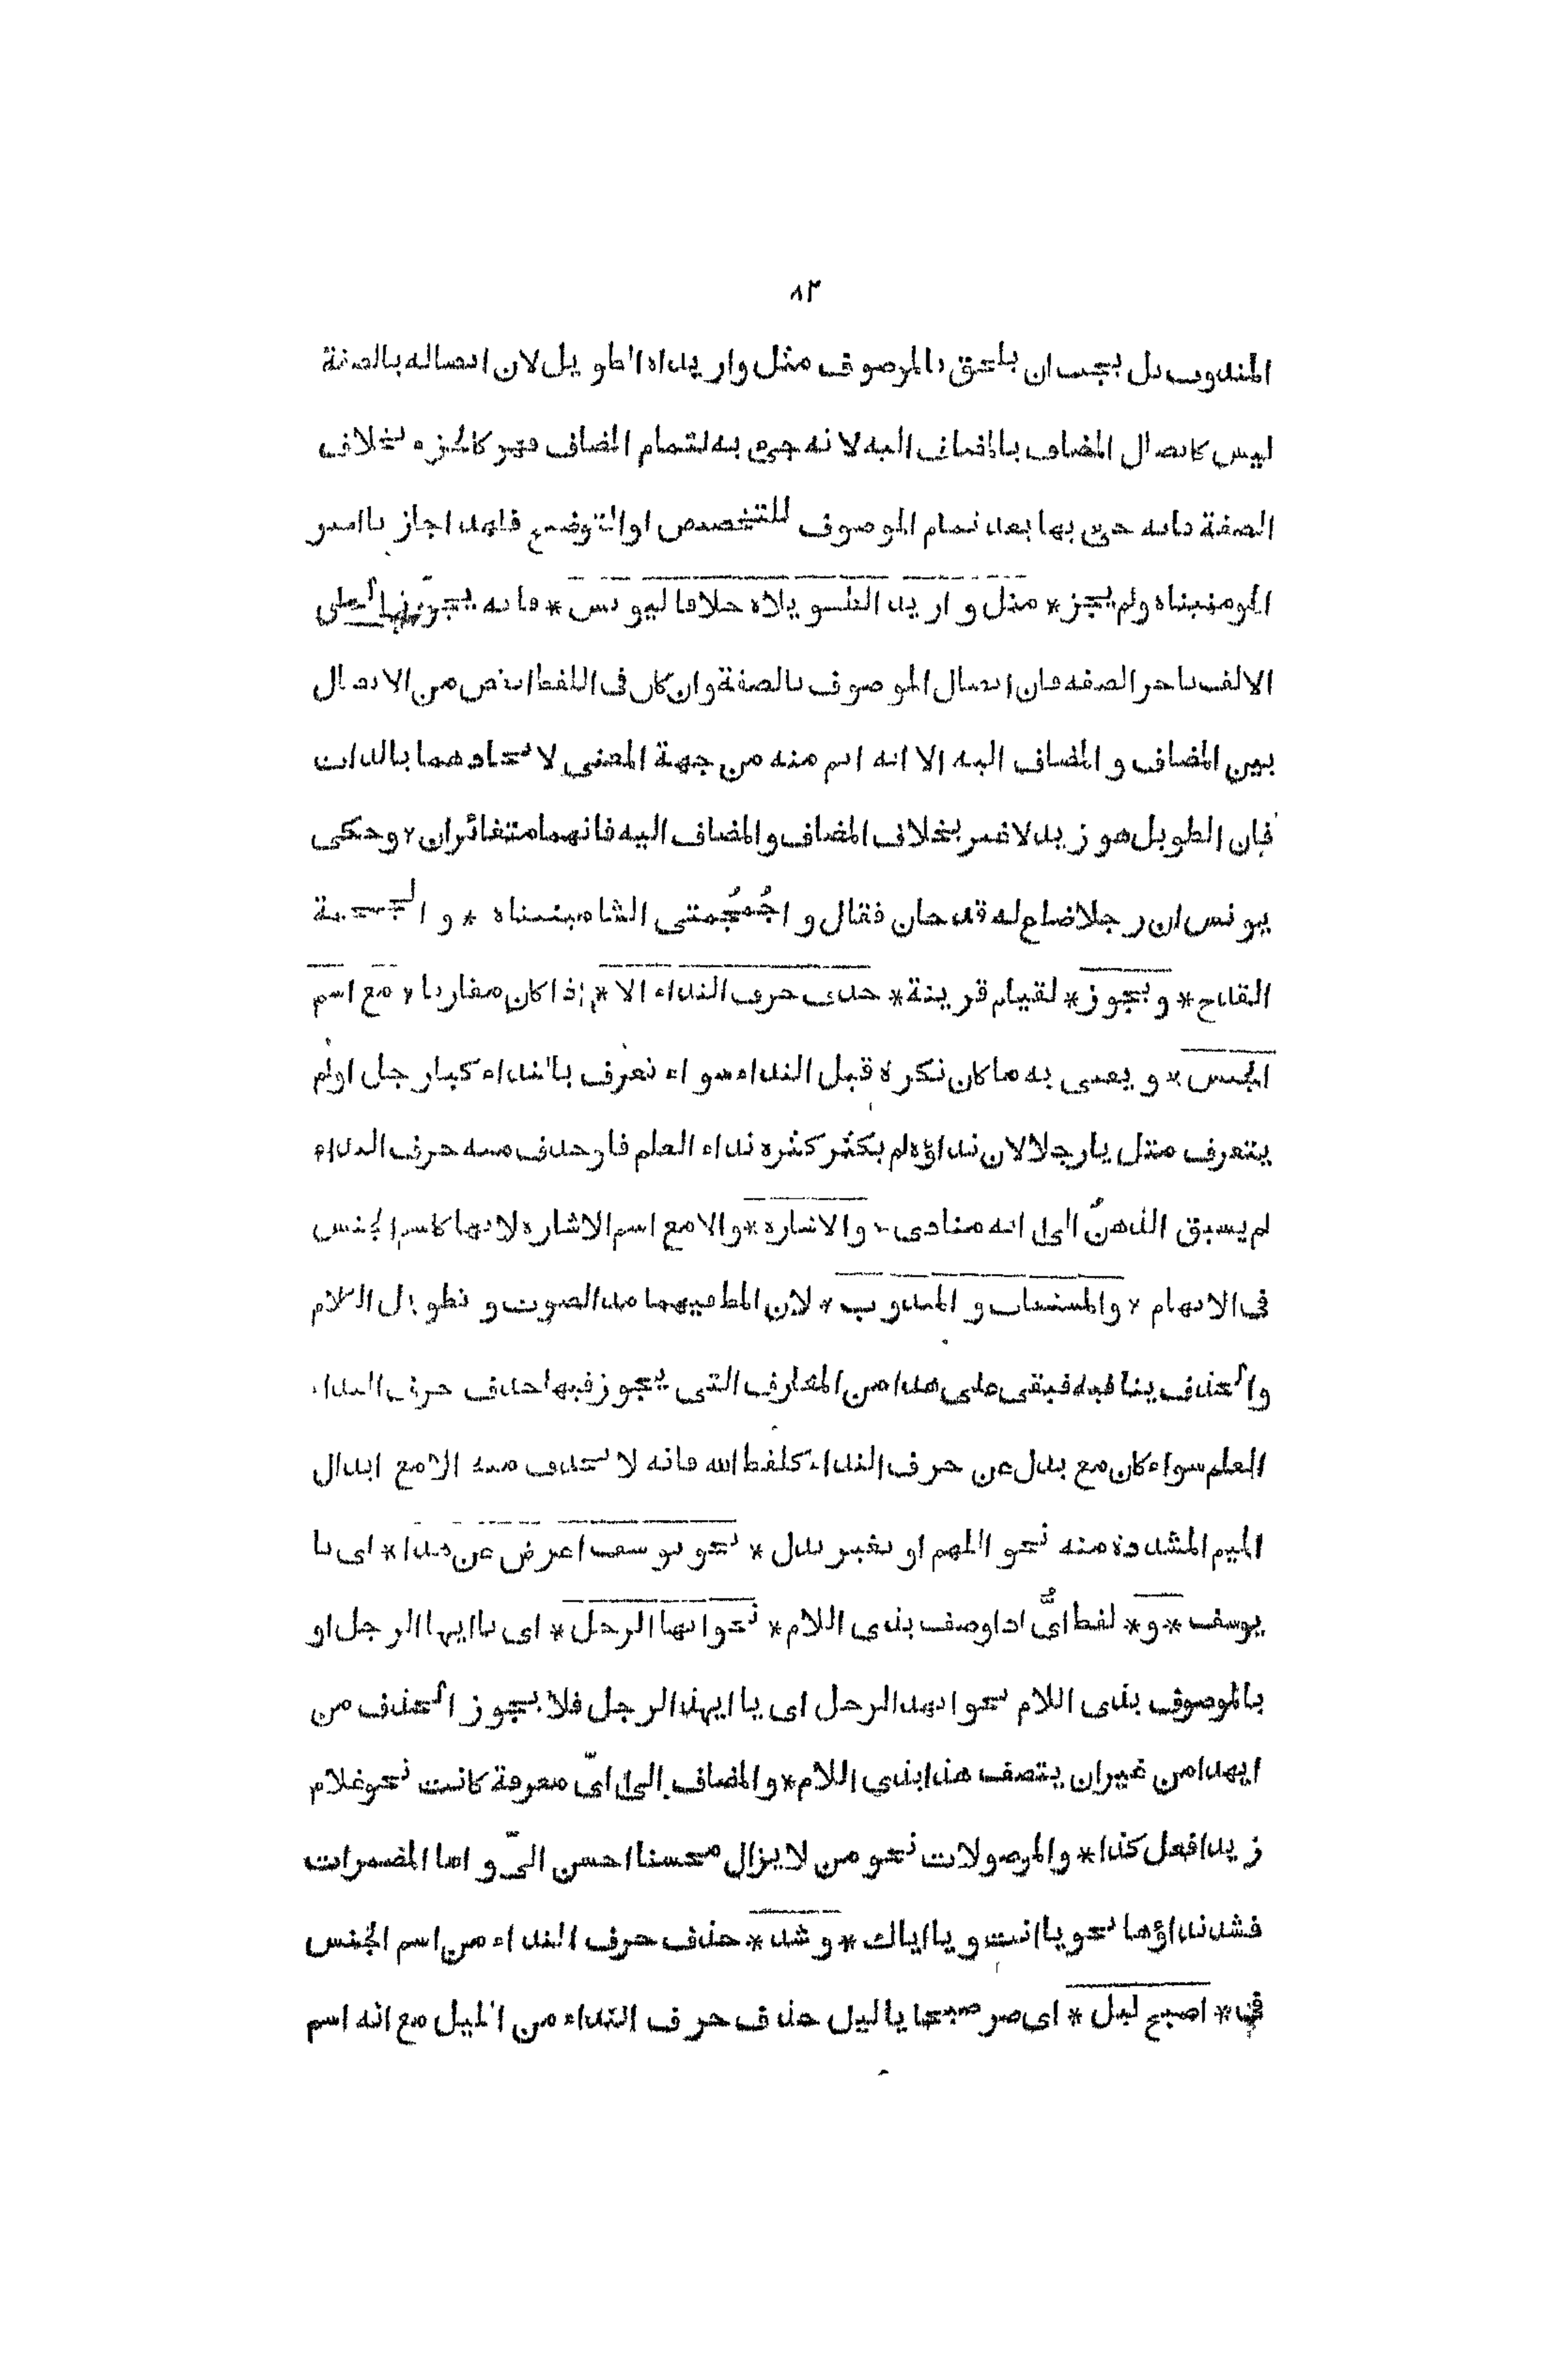 ٨٣
المندوب بل يجب ان يلحق بالموصوف مثل وازيداه الطويل لان اتصاله بالصفة
ليس كاتصال المضاف بالمضاف اليه لانه جيء به لتمام المضاف فهو كالجزء بخلاف
الصفة فانه جيء بها بعد تمام الموصوف للتخصيص او التوضيح فلهذا جاز يا امير
المومنيناه ولم يجز * مثل وازيد الطويلاه خلافا ليونس * فانه يجوّز الحاق
الالف باخر الصفة فان اتصال الموصوف بالصفة وان كان فى اللفظ انقص من الاتصال
بين المضاف والمضاف اليه الا انه اتم منه من جهة المعنى لاتحادهما بالذات
فان الطويل هو زيد لا غير بخلاف المضاف والمضاف اليه فانهما متغائران * وحكى
يونس ان رجلا ضاع له قدحان فقال واجُمجُمتى الشاميتيناه * والجمجمة
القدح * ويجوز * لقيام قرينة * حذف حرف النداء الا * اذا كان مقارنا * مع اسم
الجنس * ويعنى به ما كان نكرة قبل النداء سواء تعرف بالنداء كيا رجل اولم
يتعرف مثل يا رجلا لان نداؤه لم يكثر كثرة نداء العلم فلو حذف منه حرف النداء
لم يسبق الذهنُ الى انه منادى * والاشارة * والا مع اسم الاشارة لانها كاسم الجنس
فى الابهام * والمستغاث والمندوب * لان المط فيهما مد الصوت وتطويل الكلام
والحذف ينافيه فبقى على هذا من المعارف التى يجوز فيها حذف حرف النداء
العلم سواء كان مع بدل عن حرف النداء كلفظ الله فانه لا يحذف منه الا مع ابدال
الميم المشددة منه نحو اللهم او بغير بدل * نحو يوسف اعرض عن هذا * اى يا
يوسف * و * لفظ ائُّ اذا وصف بذى اللام * نحو ايها الرجل * اى يا ايها الرجل او
بالموصوف بذى اللام نحو ايهذا الرجل اى يا ايهذا الرجل فلا يجوز الحذف من
ايهذا من غير ان يتصف هذا بذى اللام * والمضاف الى اىّ معرفة كانت نحو غلام
زيد افعل كذا * والموصولات نحو من لا يزال محسنا احسن الىّ واما المضمرات
فشذ نداؤها نحو يا انت ويا اياك * وشذ * حذف حرف النداء من اسم الجنس
فى * اصبح ليل * اى صر صبحا يا ليل حذف حرف النداء من الليل مع انه اسم